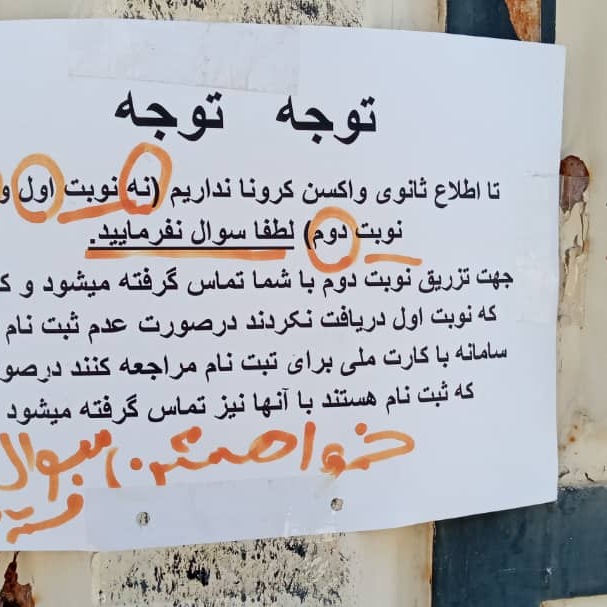 توجه توجه
تا اطلاع ثانوی واکسن کرونا نداریم (نه نوبت اول و
نوبت دوم) لطفا سوال نفرمایید.
جهت تزریق نوبت دوم با شما تماس گرفته میشود و ک
که نوبت اول دریافت نکردند درصورت عدم ثبت نام
سامانه با کارت ملی برای تبت نام مراجعه کنند درصو
که ثبت نام هستند با آنها نیز تماس گرفته میشود
سوال